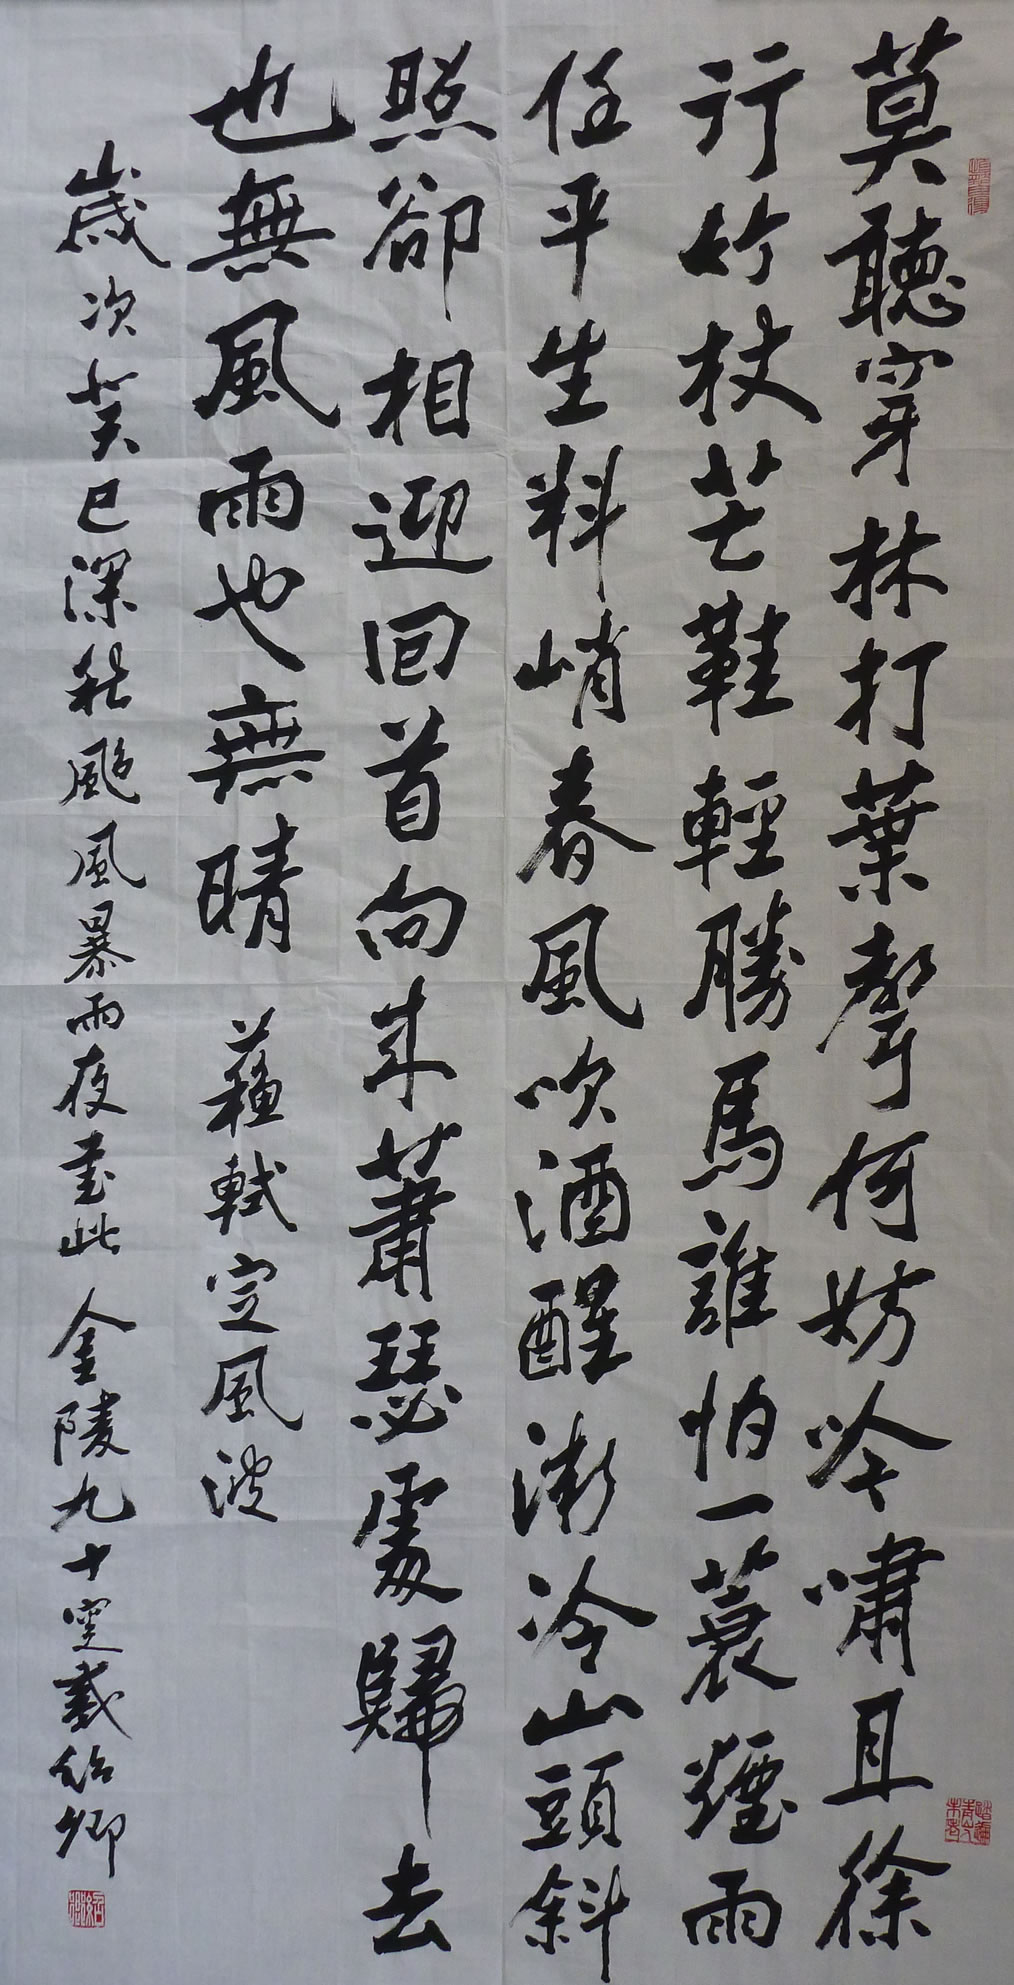 莫聽穿林打葉聲何妨吟嘯且徐
行竹杖芒鞋輕勝馬誰怕一蓑煙雨
任平生料峭春風吹酒醒漸冷山頭斜
照卻相迎回首向來蕭瑟處歸去
也無風雨也無晴 蘇軾定風波
歲次癸巳深秋颱風暴雨夜書此 金陵九十叟戴紹卿